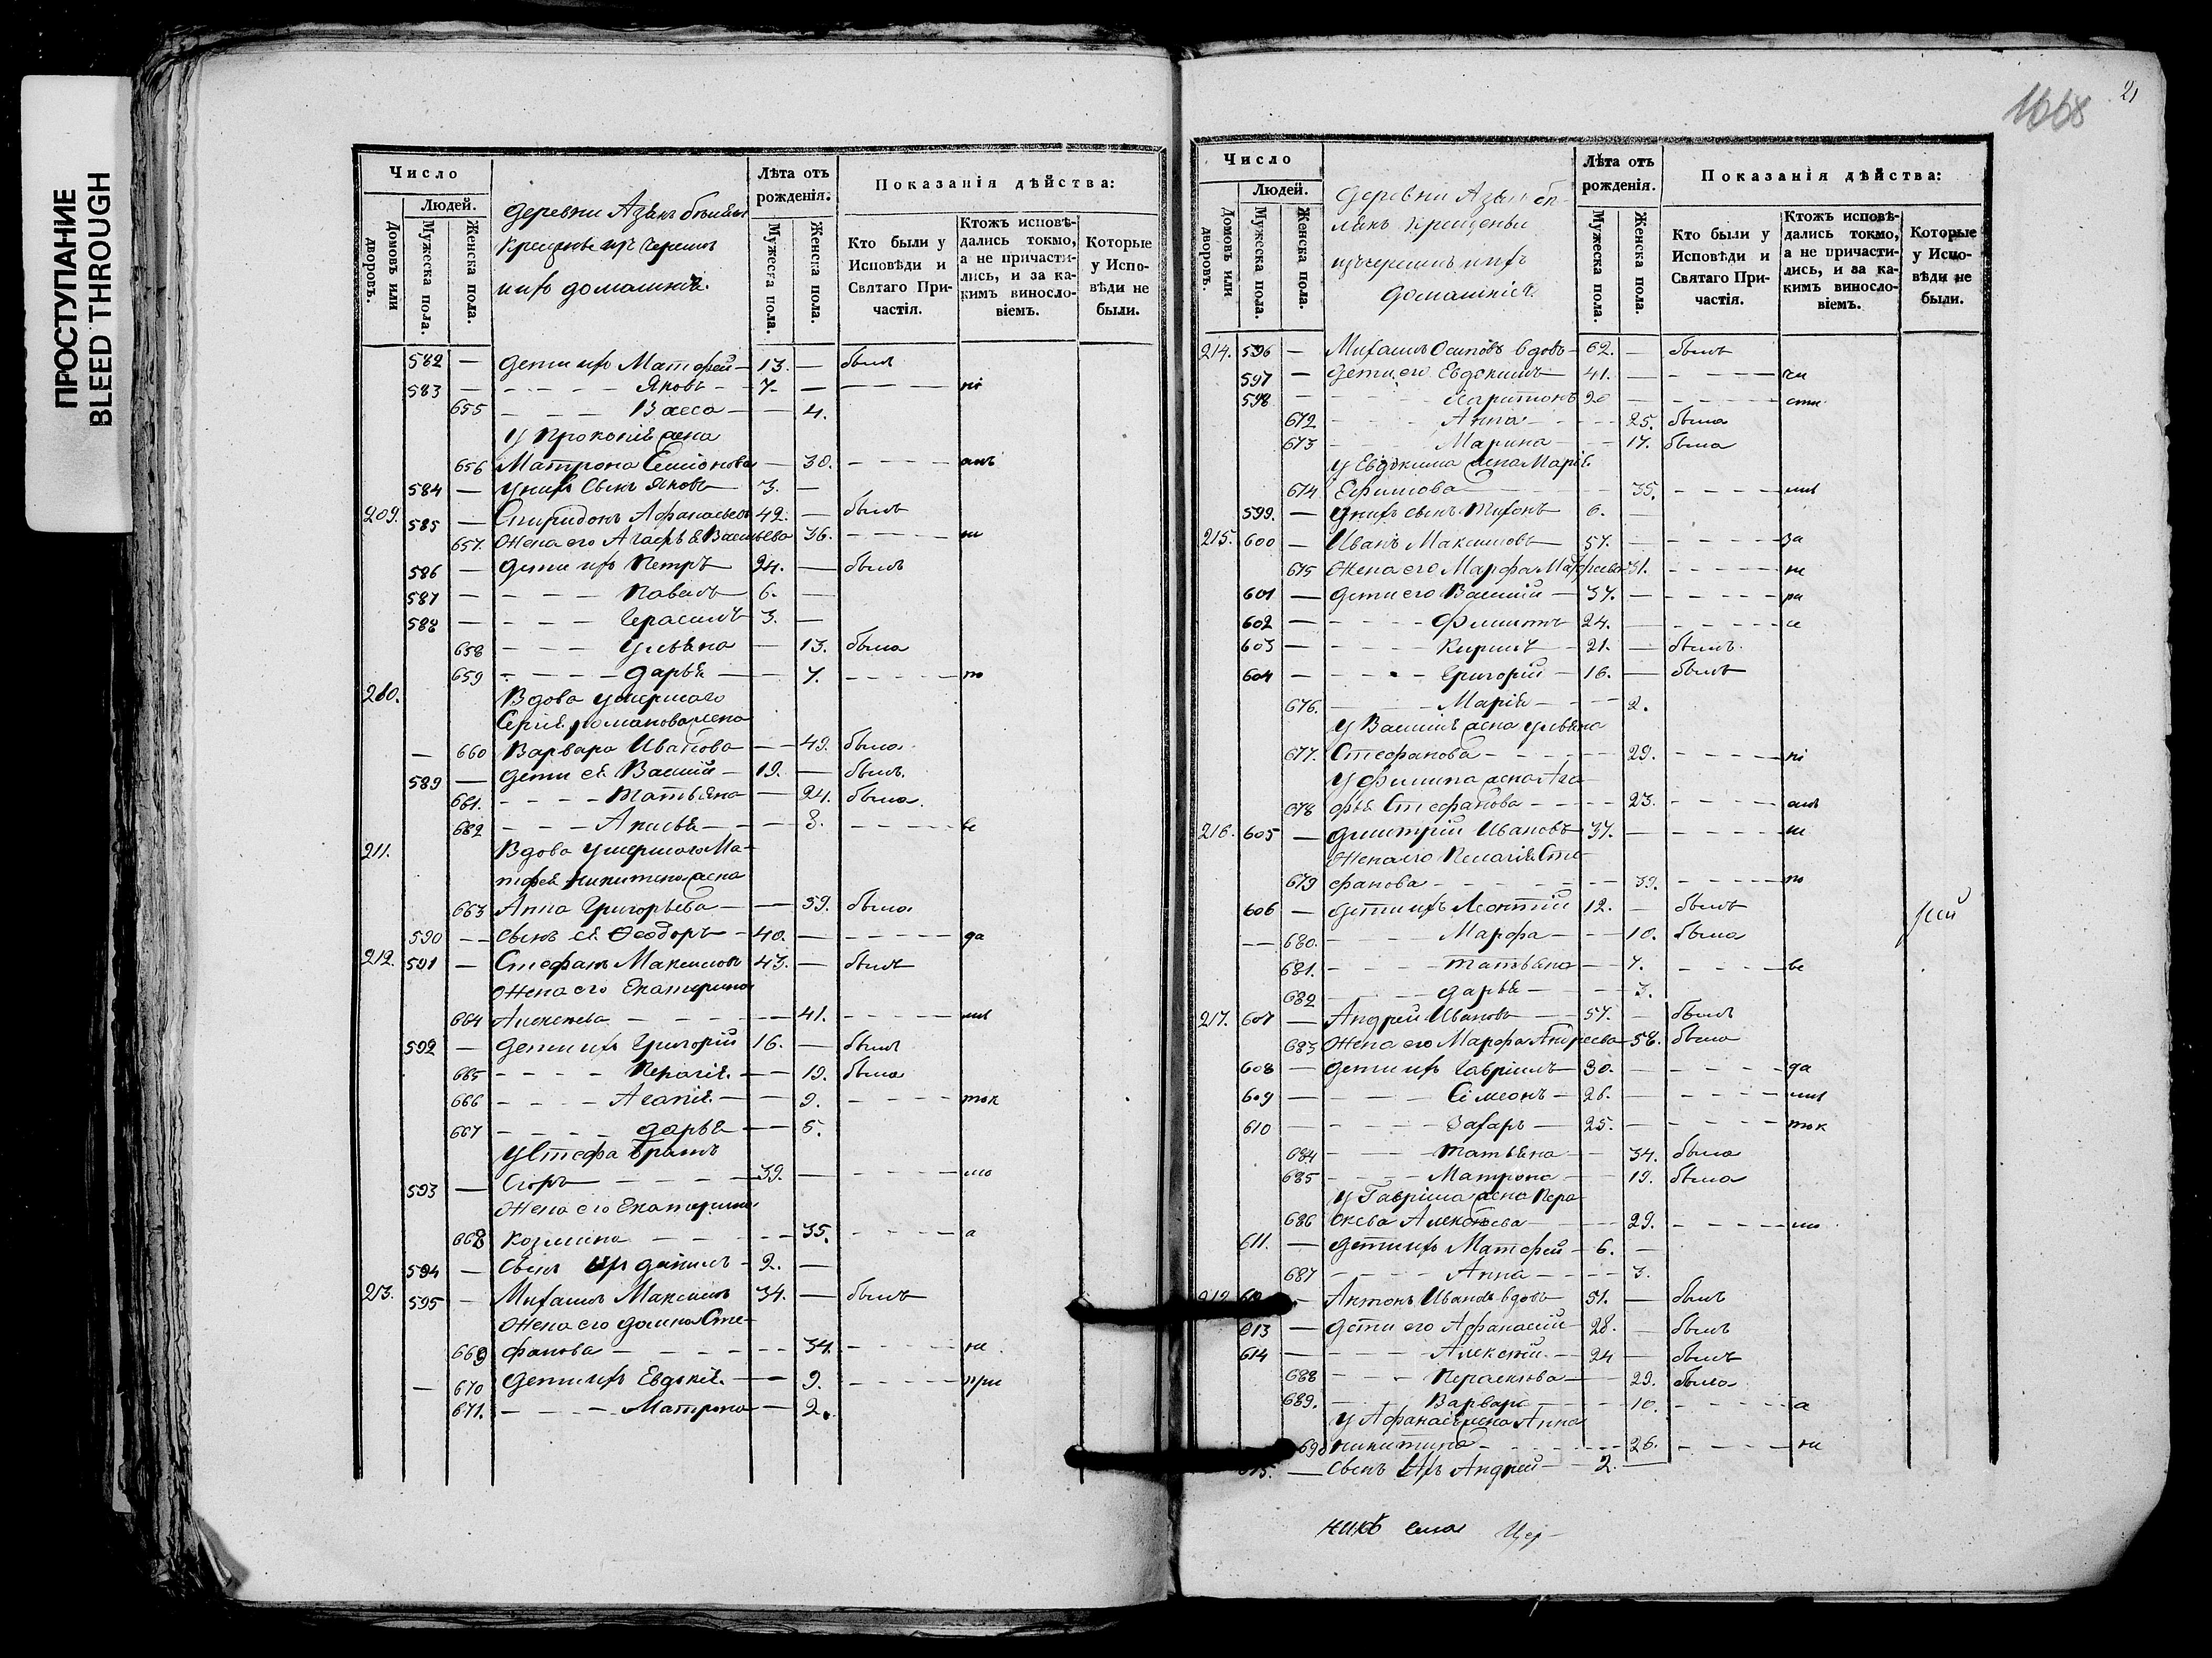 ПРОСТУПАНИЕ
BLEED THROUGH
Число
Людей.
Домовъ или дворовъ.
Мужеска пола.
Женска пола.
деревни
крещены изъ черемисъ
и ихъ домашнія.
Лѣта отъ рожденія.
Мужеска пола.
Женска пола.
Показанія дѣйства:
Кто были у Исповѣди и Святаго Причастія.
Ктожъ исповѣдались токмо, а не причастились, и за какимъ винословіемъ.
Которые у Исповѣди не были.
582 — дети ихъ Матфей — 13. — былъ
583 — — — — Яковъ — 7. — — — — по
655 — — — Васса — — 4.
У Прокопія жена
656 Матрона Симіонова — 30. — — — ан
584 — у нихъ сынъ Яковъ 3. —
209. 585 — Спиридонъ Афанасьевъ 42. — былъ
657. Жена его Агафья Васильева 36. — — — —
586 — дети ихъ Петръ 24. — былъ
587 — — — — Павелъ — 6. —
588 — — — — Герасимъ 3. —
658 — — — Ульяна — 13. была
659 — — — — Дарья — — 7. — — — — по
210. Вдова умершаго
Сергія Романова жена
— 660 Варвара Иванова — — 49. была
589 — дети ея Василій — 19. — былъ.
661. — — — — Татьяна — 24. была.
662 — — — Анисья — — 8. — — — — ве
211. Вдова умершаго Ма-
тфея Никитина жена
663 Анна Григорьева — — 59. была
590 — — сынъ ея Ѳеодоръ — 40. — — — — — да
212. 591 — Стефанъ Максимовъ 43. — былъ
Жена его Екатерина
664 Алексѣева — — — — — 41. — — — —
592 — дети ихъ Григорій 16. — былъ
665 — — — — Пелагія. — — 19. была
666 — — — — Агапія. — — 9. — — — — ток
667 — — — — Дарья — — 5.
У Стефа братъ
593 — Егоръ — — — — 39. — — — — — мо
Жена его Екатерина
668 Козмина — — — — — 35. — — — — а
594 — сынъ ихъ Данилъ — 2. —
213. 595 — Михаилъ Максимовъ 34. — былъ
Жена его Домна Сте-
669 фанова — — — — — 34. — — — — не
— 670 дети ихъ Евдокія. — — 9. — — — — при
671. — — — — Матрона — — 2.
1668
21
Число
Людей.
Домовъ или дворовъ.
Мужеска пола.
Женска пола.
деревни
крещены
изъ черемисъ и ихъ
домашнія.
Лѣта отъ рожденія.
Мужеска пола.
Женска пола.
Показанія дѣйства:
Кто были у Исповѣди и Святаго Причастія.
Ктожъ исповѣдались токмо, а не причастились, и за какимъ винословіемъ.
Которые у Исповѣди не были.
214. 596 — Михаилъ Осиповъ вдовъ — 62. — былъ
597 — дети его Евдокимъ — 41. — — — — — ча
598 — — — — Харитонъ 20 — — — — — сти
672 — — — Анна — — — 25. была
673 — — — Марина — — 17. была
У Евдокима жена Марія
674 Ефимова — — — — — 35. — — — —
599. — у нихъ сынъ Тихонъ — 6. —
215. 600 — Иванъ Максимовъ — 57. — — — — — за
675 Жена его Марфа Матфеева 51. — — — — — не
601 — дети его Василій — 37. — — — — — ра
602 — — — — Филиппъ 24. — — — — —
603 — — — — Кирилъ — 21. — былъ.
604 — — — — Григорій — 16. — былъ
676. — — — Марія — — — 2.
У Василія жена Ульяна
677. Стефанова — — — — — 29. — — — — по
У Филиппа жена Ага-
678 фья Стефанова — — — — 23. — — — —
216. 605 — Димитрій Ивановъ 37. — — — —
Жена его Пелагія Сте-
679 фанова — — — — — 39. — — — — по
606 — дети ихъ Леонтій 12. — былъ
— — 680. — — — — Марфа — — 10. была
681. — — — — Татьяна — — 7. — — — — ве
682 — — — — Дарья — — 3.
217. 607 — Андрей Ивановъ — 57. — былъ
683 Жена его Марфа Андреева — 58. была
608 — дети ихъ Гавріилъ — 30. — — — — — да
609 — — — — Сімеонъ — 26. — — — — —
610 — — — — Захаръ — 25. — — — — — ток
684 — — — Татьяна — 34. была
685 — — — — Матрона — — 19. была
У Гавріила жена Пера-
686 скева Алексѣева — — — 29. — — — — мо
611. — дети ихъ Матфей — 6. —
687 — — — — Анна — — — 3.
— Антонъ Ивановъ вдовъ — 51. — былъ
613 — дети его Афанасій — 28. — былъ
614 — — — — Алексѣй. — 24 — былъ
688 — — — Пераскова — — 29. была
689. — — — — Варвара — — — 10. — — — — а
У Афанасія жена Анна
690 Никитина — — — — — 26. — — — — не
615. — сынъ ихъ Андрей — 2. —
никъ села Цер-